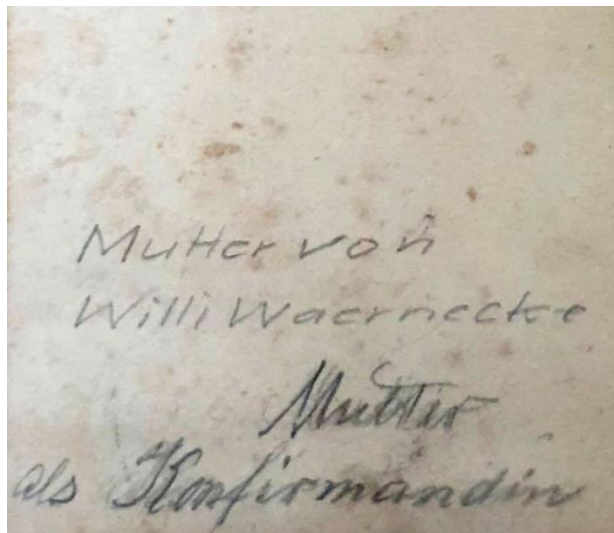 Mutter von
Willi Waernecke
Mutter
als Konfirmandin